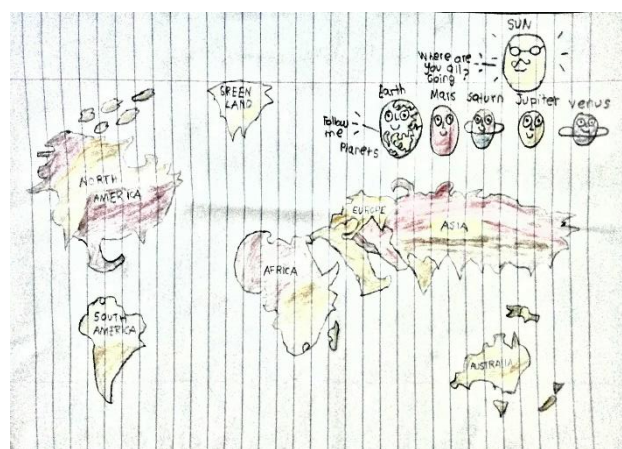 SUN
Where are
you all
Going?
Earth
Mars
Saturn
Jupiter
venus
Follow
me
Planets
GREEN
LAND
NORTH
AMERICA
EUROPE
ASIA
AFRICA
SOUTH
AMERICA
AUSTRALIA